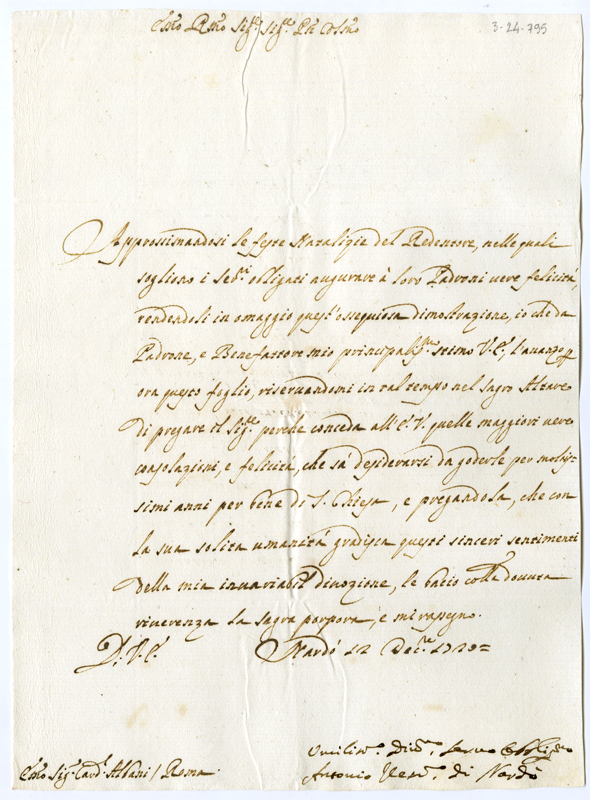 Emo Rmo Sig.re Sig.re Pñe Colmo
3-24-795
Approssimandosi le feste Natalizie del Redentore, nelle quali
sogliono i Servi obligati augurare à loro Padroni vere felicità,
rendendoli in omaggio quest'ossequiosa dimostrazione, io che da
Padrone, e Benefattore mio principaliss.mo stimo V.E., l'avanzo
ora questo foglio, riservandomi in tal tempo nel Sagro Altare
di pregare il Sig.re perche conceda all'E.V. quelle maggiori vere
consolazioni, e felicità, che sà desiderarsi da goderle per moltis-
simi anni per bene di S. Chiesa, e pregandola, che con
la sua solita umanità gradisca questi sinceri sentimenti
della mia invariabil divozione, le bacio colla dovuta
riverenza la sagra porpora, e mi rassegno.
D. V. E. Nardò 12 Dec.re 1729=
Umiliss.o Div.o Servo Obligmo
Emo Sig.r Card. Albani / Roma. Antonio Vesc.o di Nardò